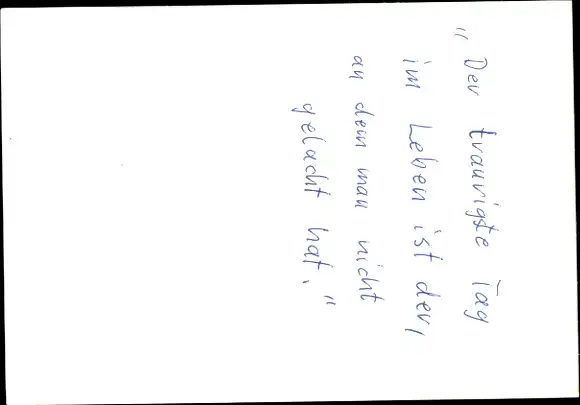 „Der traurigste Tag
im Leben ist der,
an dem man nicht
gelacht hat."